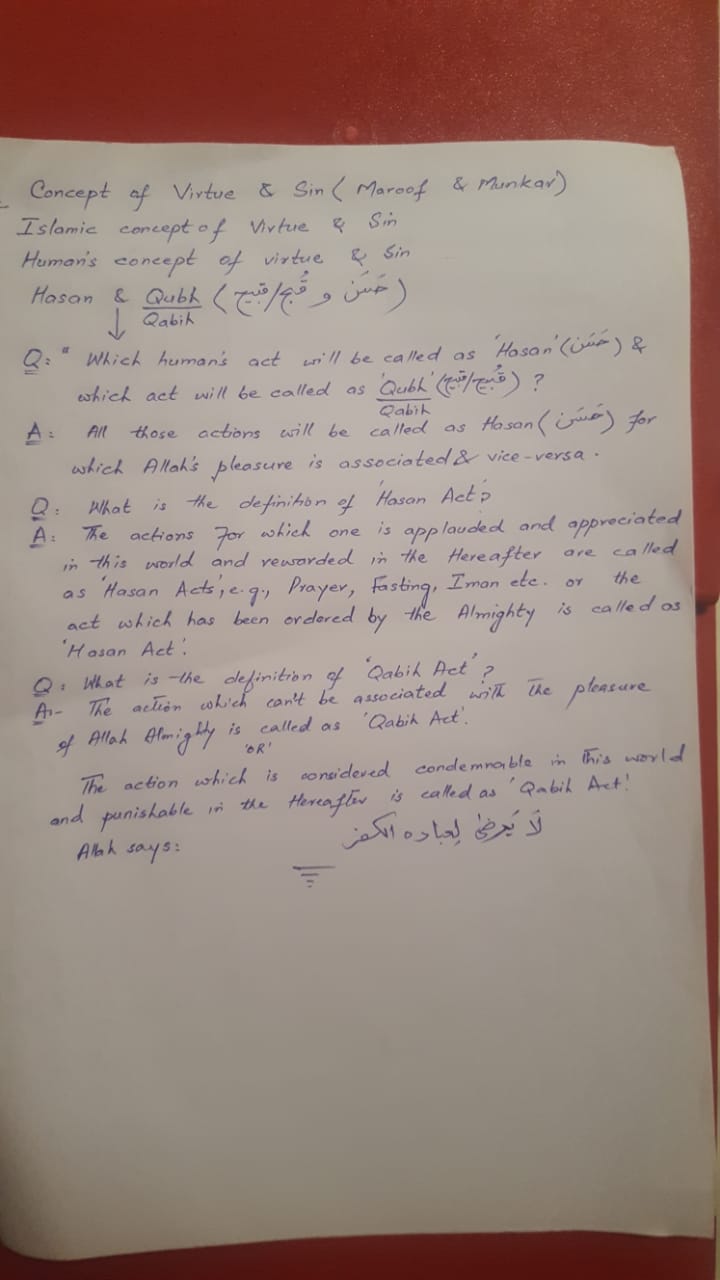 Concept of Virtue & Sin (Maroof & Munkar)
Islamic concept of Virtue & Sin
Human's concept of virtue & Sin
Hasan & Qubh (حَسَن و قُبح/قبیح)
Qabih
Q: " Which human's act will be called as 'Hasan' (حَسَن) &
which act will be called as 'Qubh' (قُبح/قبیح) ?
Qabih
A: All those actions will be called as Hasan (حَسَن) for
which Allah's pleasure is associated & vice-versa.
Q: What is the definition of 'Hasan Act'?
A: The actions for which one is applauded and appreciated
in this world and rewarded in the Hereafter are called
as 'Hasan Acts', e.g., Prayer, Fasting, Iman etc. or the
act which has been ordered by the Almighty is called as
'Hasan Act'.
Q: What is the definition of 'Qabih Act'?
A:- The action which can't be associated with the pleasure
of Allah Almighty is called as 'Qabih Act'.
'OR'
The action which is considered condemnable in this world
and punishable in the Hereafter is called as 'Qabih Act'.
Allah says: لَا یَرضٰی لِعبادہ الکفر